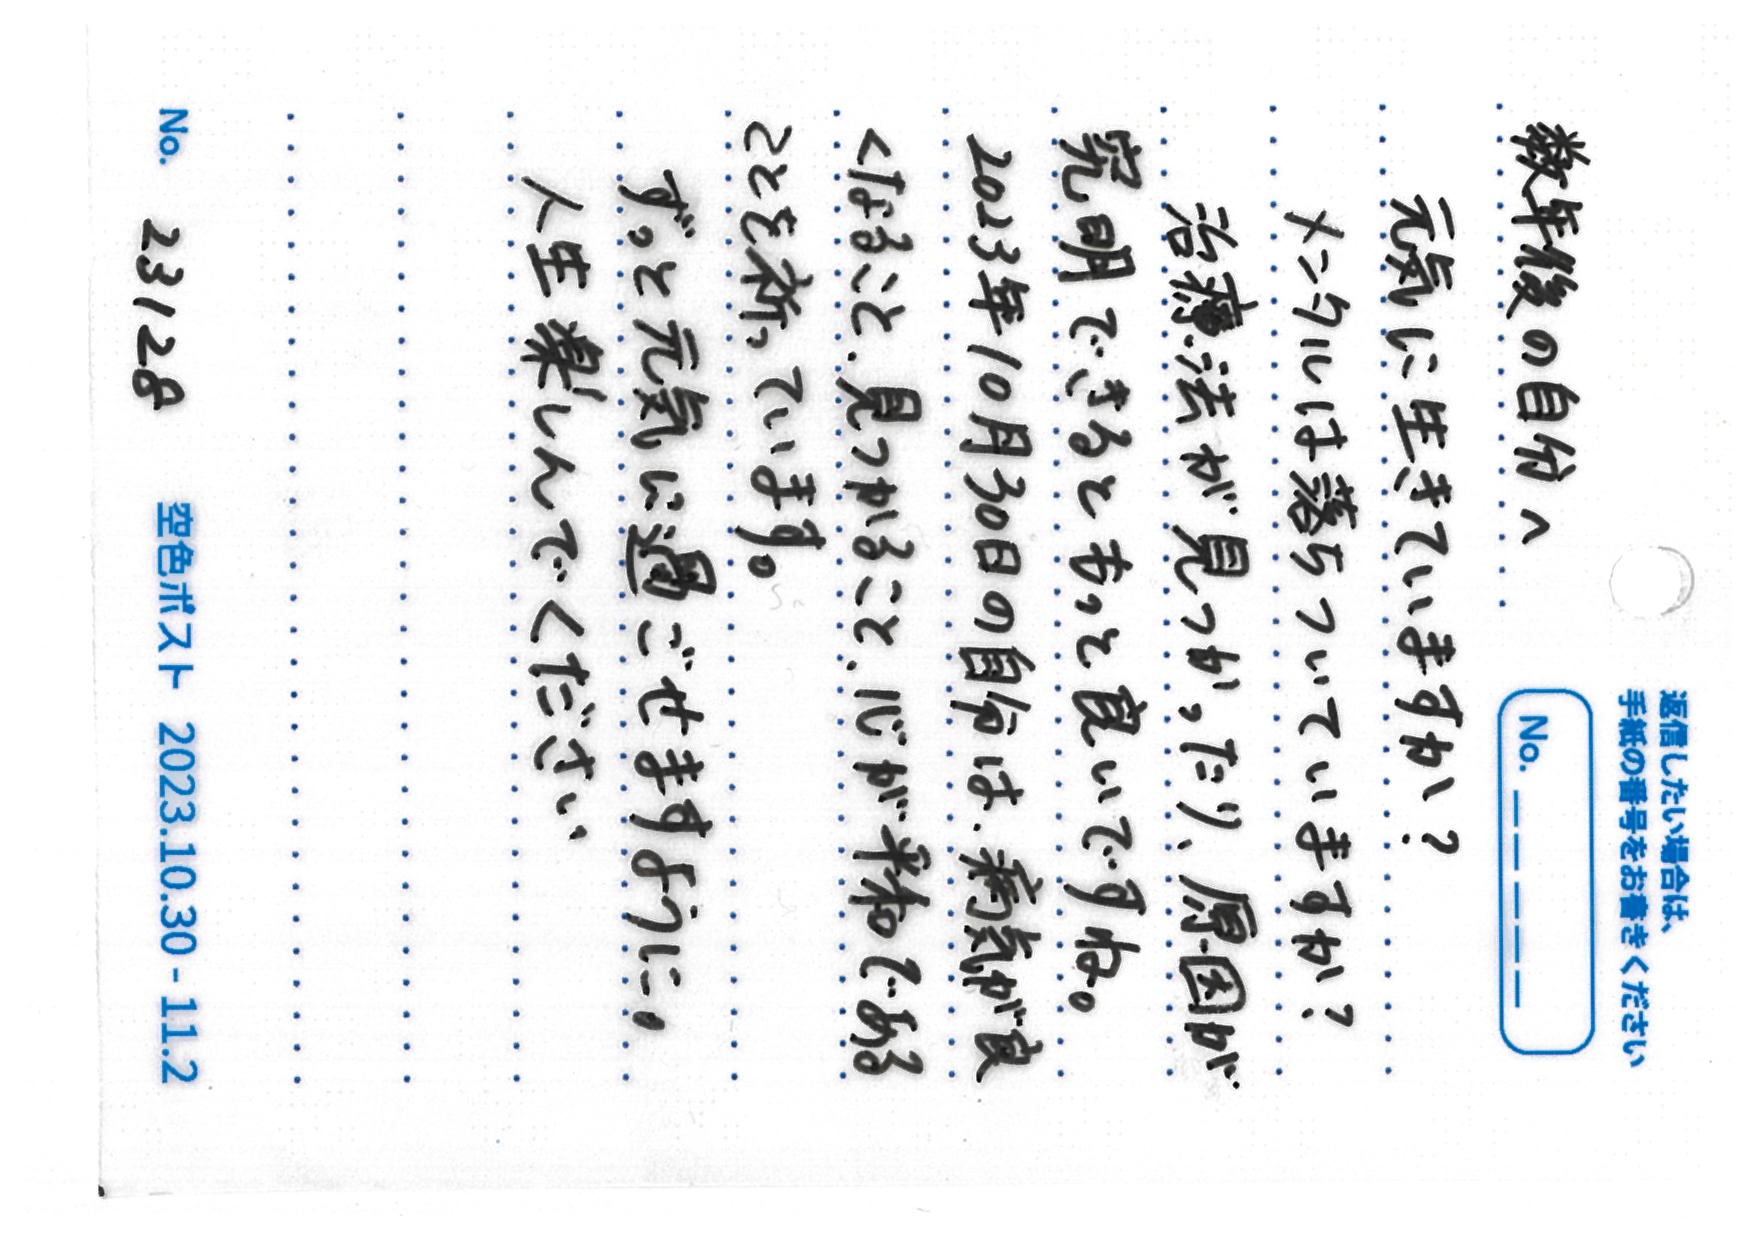 返信したい場合は、
手紙の番号をお書きください
No.
数年後の自分へ
元気に生きていますか?
メンタルは落ちついていますか?
治療法が見つかったり、原因が
究明できるともっと良いですね。
2023年10月30日の自分は、病気が良
くなること、見つかること、心が平和である
ことを祈っています。
ずっと元気に過ごせますように。
人生楽しんでください
No. 23128 空色ポスト 2023.10.30 - 11.2